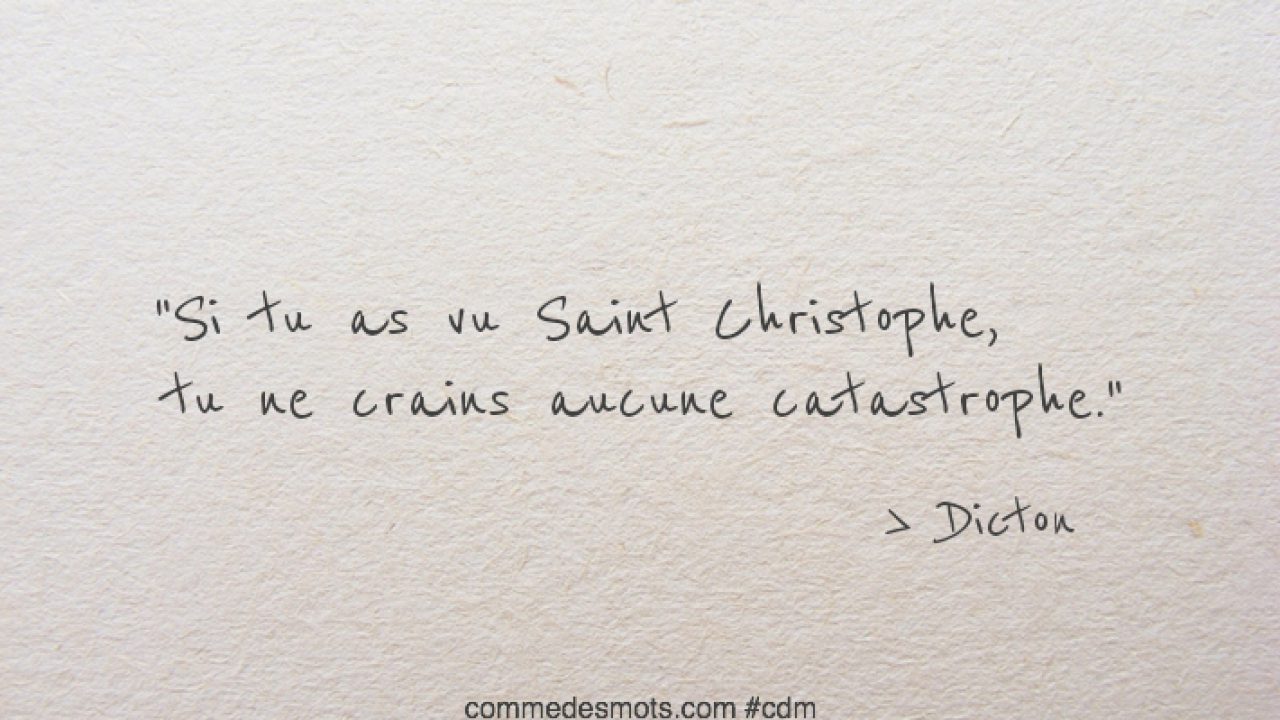 "Si tu as vu Saint Christophe,
tu ne crains aucune catastrophe."
> Dicton
commedesmots.com #cdm